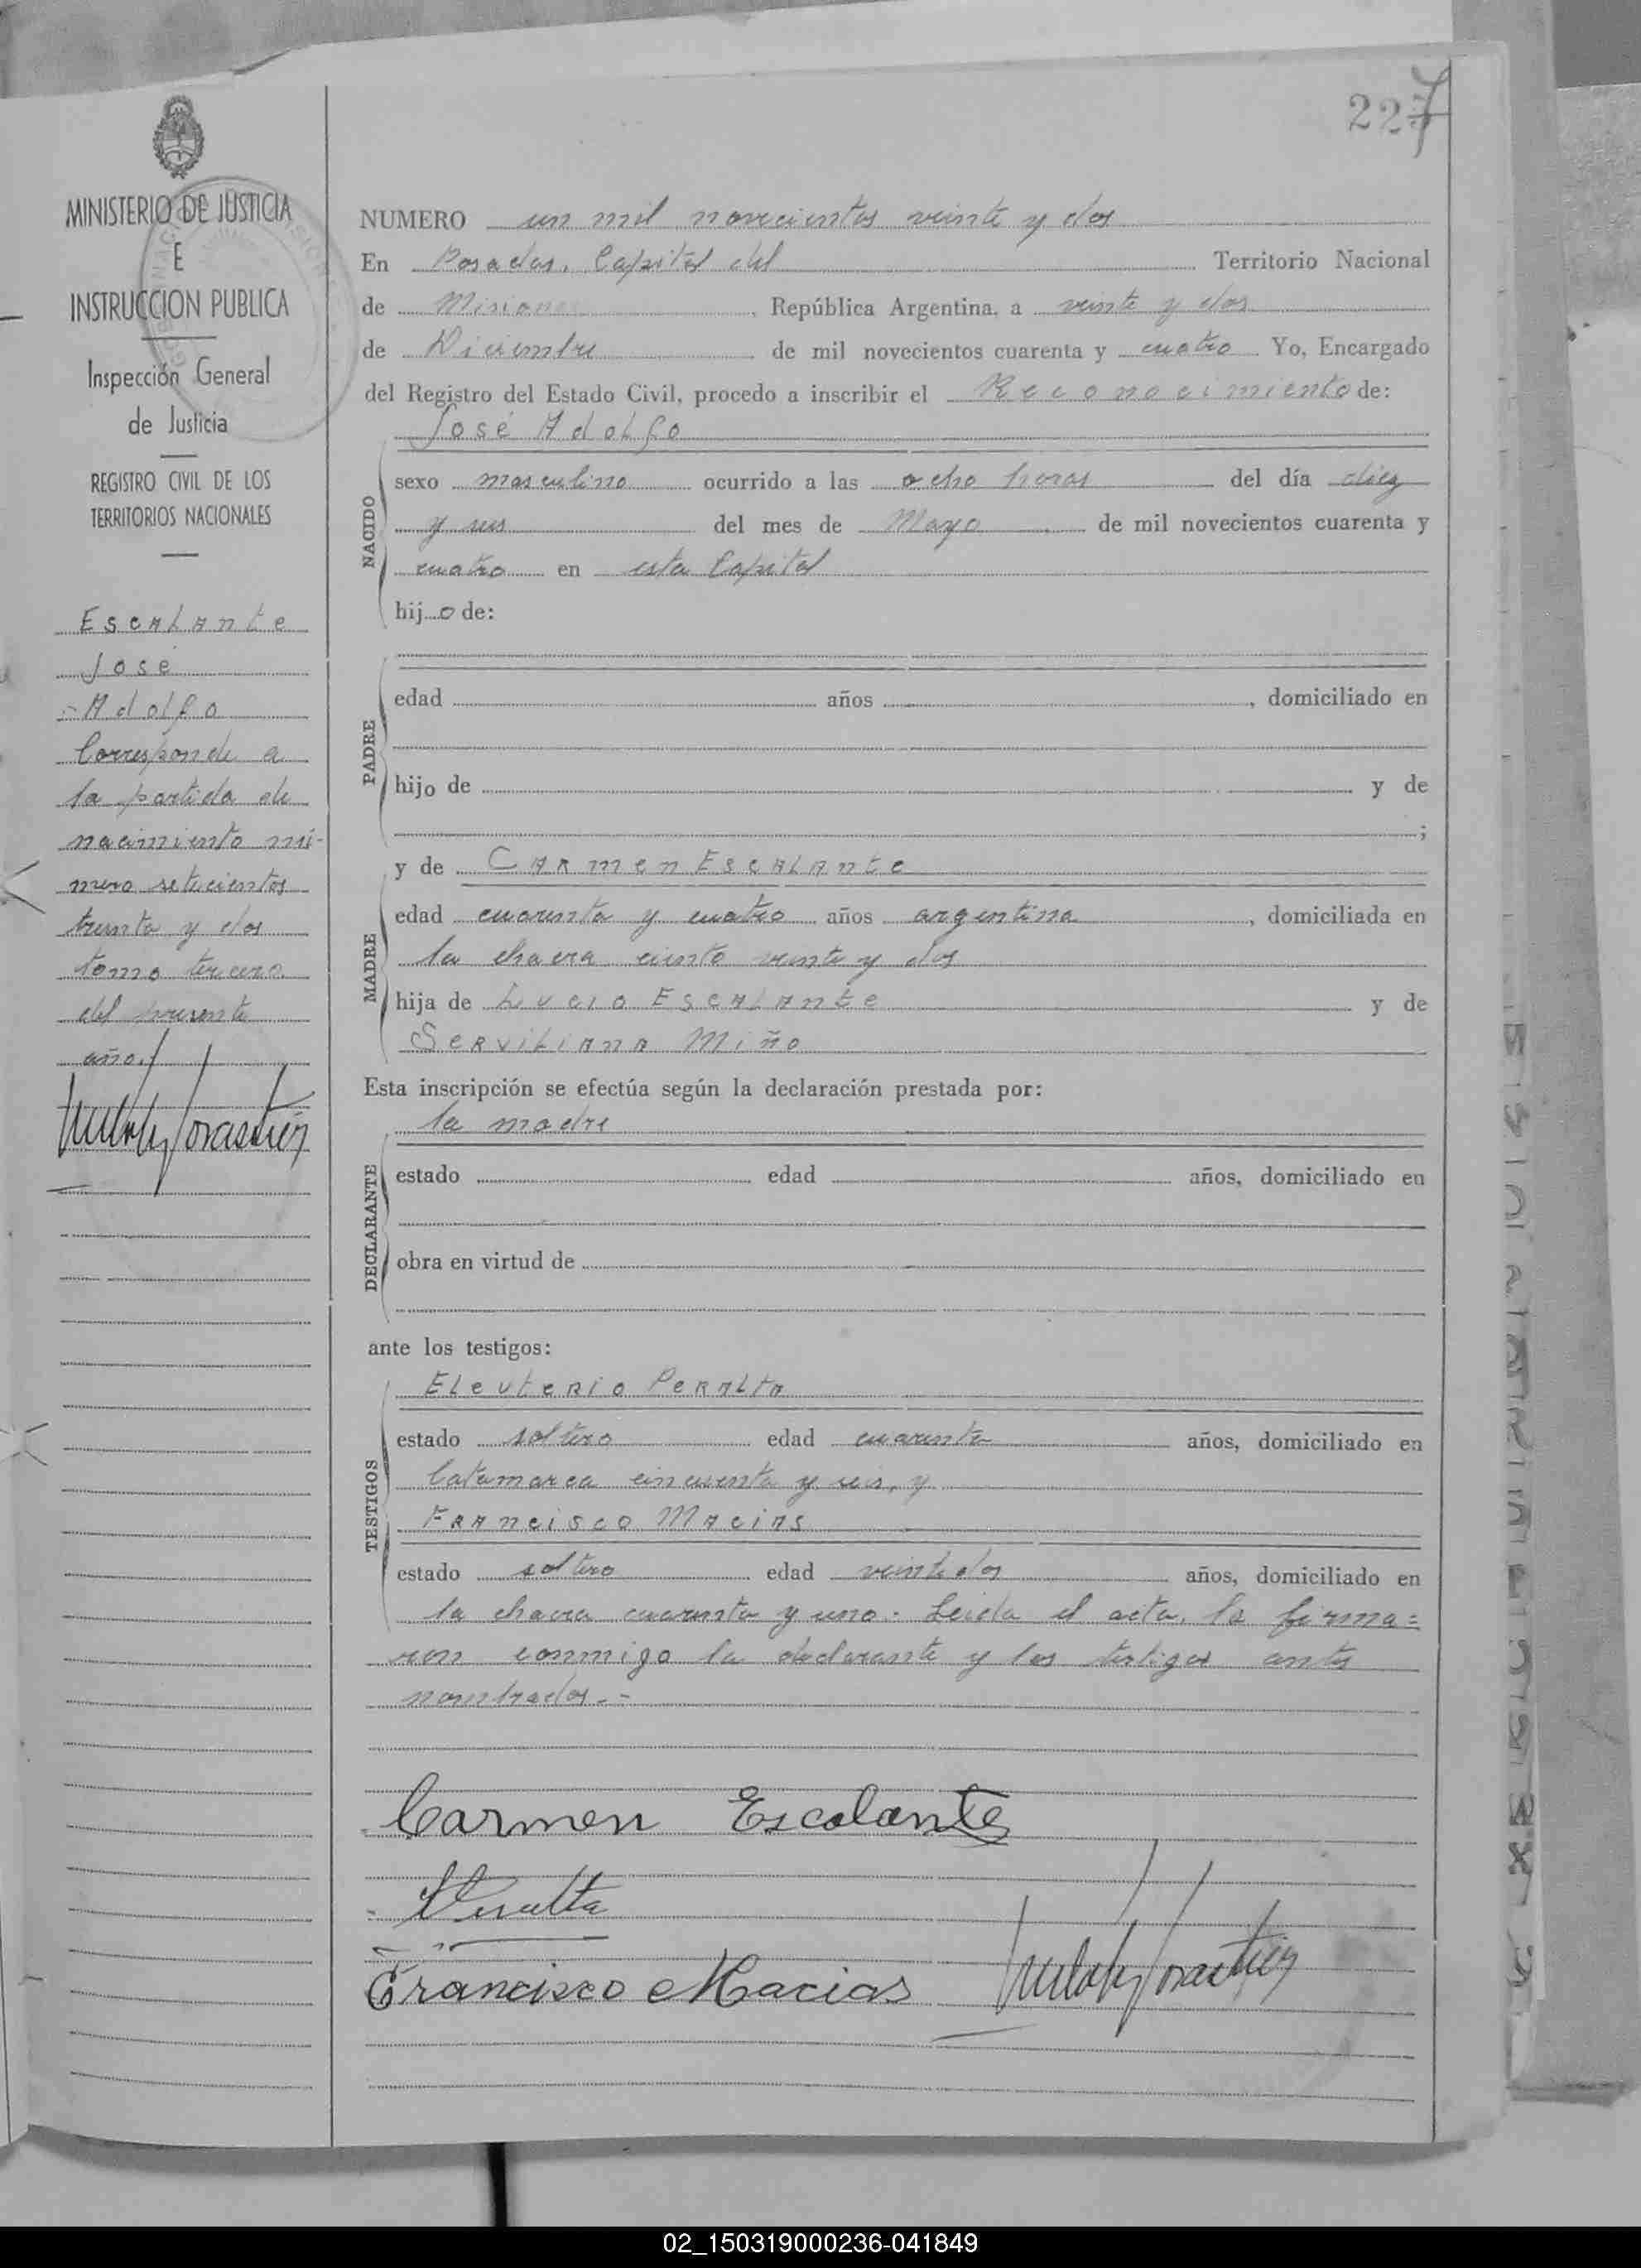 227
MINISTERIO DE JUSTICIA
E
INSTRUCCION PUBLICA
Inspección General
de Justicia
REGISTRO CIVIL DE LOS
TERRITORIOS NACIONALES
Escalante
José
Adolfo
Corresponde a
la partida de
nacimiento nú-
mero setecientos
treinta y dos
tomo tercero
del presente
año.
NUMERO un mil novecientos veinte y dos
En Posadas, Capital del Territorio Nacional
de Misiones, República Argentina, a veinte y dos
de Diciembre de mil novecientos cuarenta y cuatro Yo, Encargado
del Registro del Estado Civil, procedo a inscribir el Reconocimiento de:
José Adolfo
NACIDO
sexo masculino ocurrido a las ocho horas del día diez
y seis del mes de Mayo de mil novecientos cuarenta y
cuatro en esta Capital
hijo de:
PADRE
edad años , domiciliado en
hijo de y de
;
y de Carmen Escalante
MADRE
edad cuarenta y cuatro años argentina, domiciliada en
la chacra ciento veinte y dos
hija de Lucio Escalante y de
Serviliana Miño
Esta inscripción se efectúa según la declaración prestada por:
la madre
DECLARANTE
estado edad años, domiciliado en
obra en virtud de
ante los testigos:
Eleuterio Peralta
TESTIGOS
estado soltero edad cuarenta años, domiciliado en
Catamarca cincuenta y seis, y
Francisco Macias
estado soltero edad veintidos años, domiciliado en
la chacra cuarenta y uno. Leida el acta, la firma=
ron conmigo la declarante y los testigos antes
nombrados.-
Carmen Escalante
Peralta
Francisco Macias
02_150319000236-041849